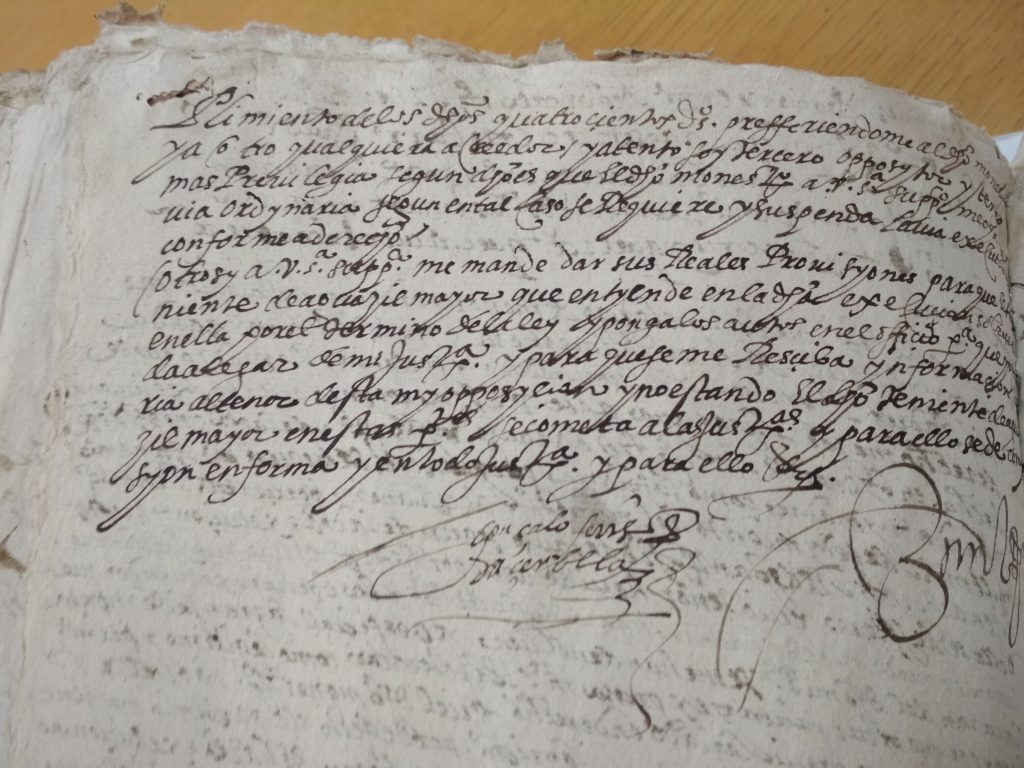 Plimiento de los dhos quatrocientos ds. prefferiendome al dho monest
ya otro qualquiera acrehedor, y atento soy tercero oppositor y tengo
mas Privilegia segun dhoes que el dho monestrº a v. sª. suppcº me oya
via Ordynaria segun en tal caso se Requiere y suspenda la via exe
conforme a derecho
Otrosy a v. sª. suppcº. me mande dar sus Reales Provisyones para que el
niente de aguazil mayor que entyende en la dha execucion
en ella por el termino de la ley y ponga los autos en el officio pª que
da alegar de mi Justª. y para que se me Resciba ynformaçion
ria al tenor desta my opposyçion y no estando El dho teniente de agua
zil mayor en estas ptes se cometa a las Justªs y para ello se de comi
syon en forma y en todo Justª. y para ello
gonçalo